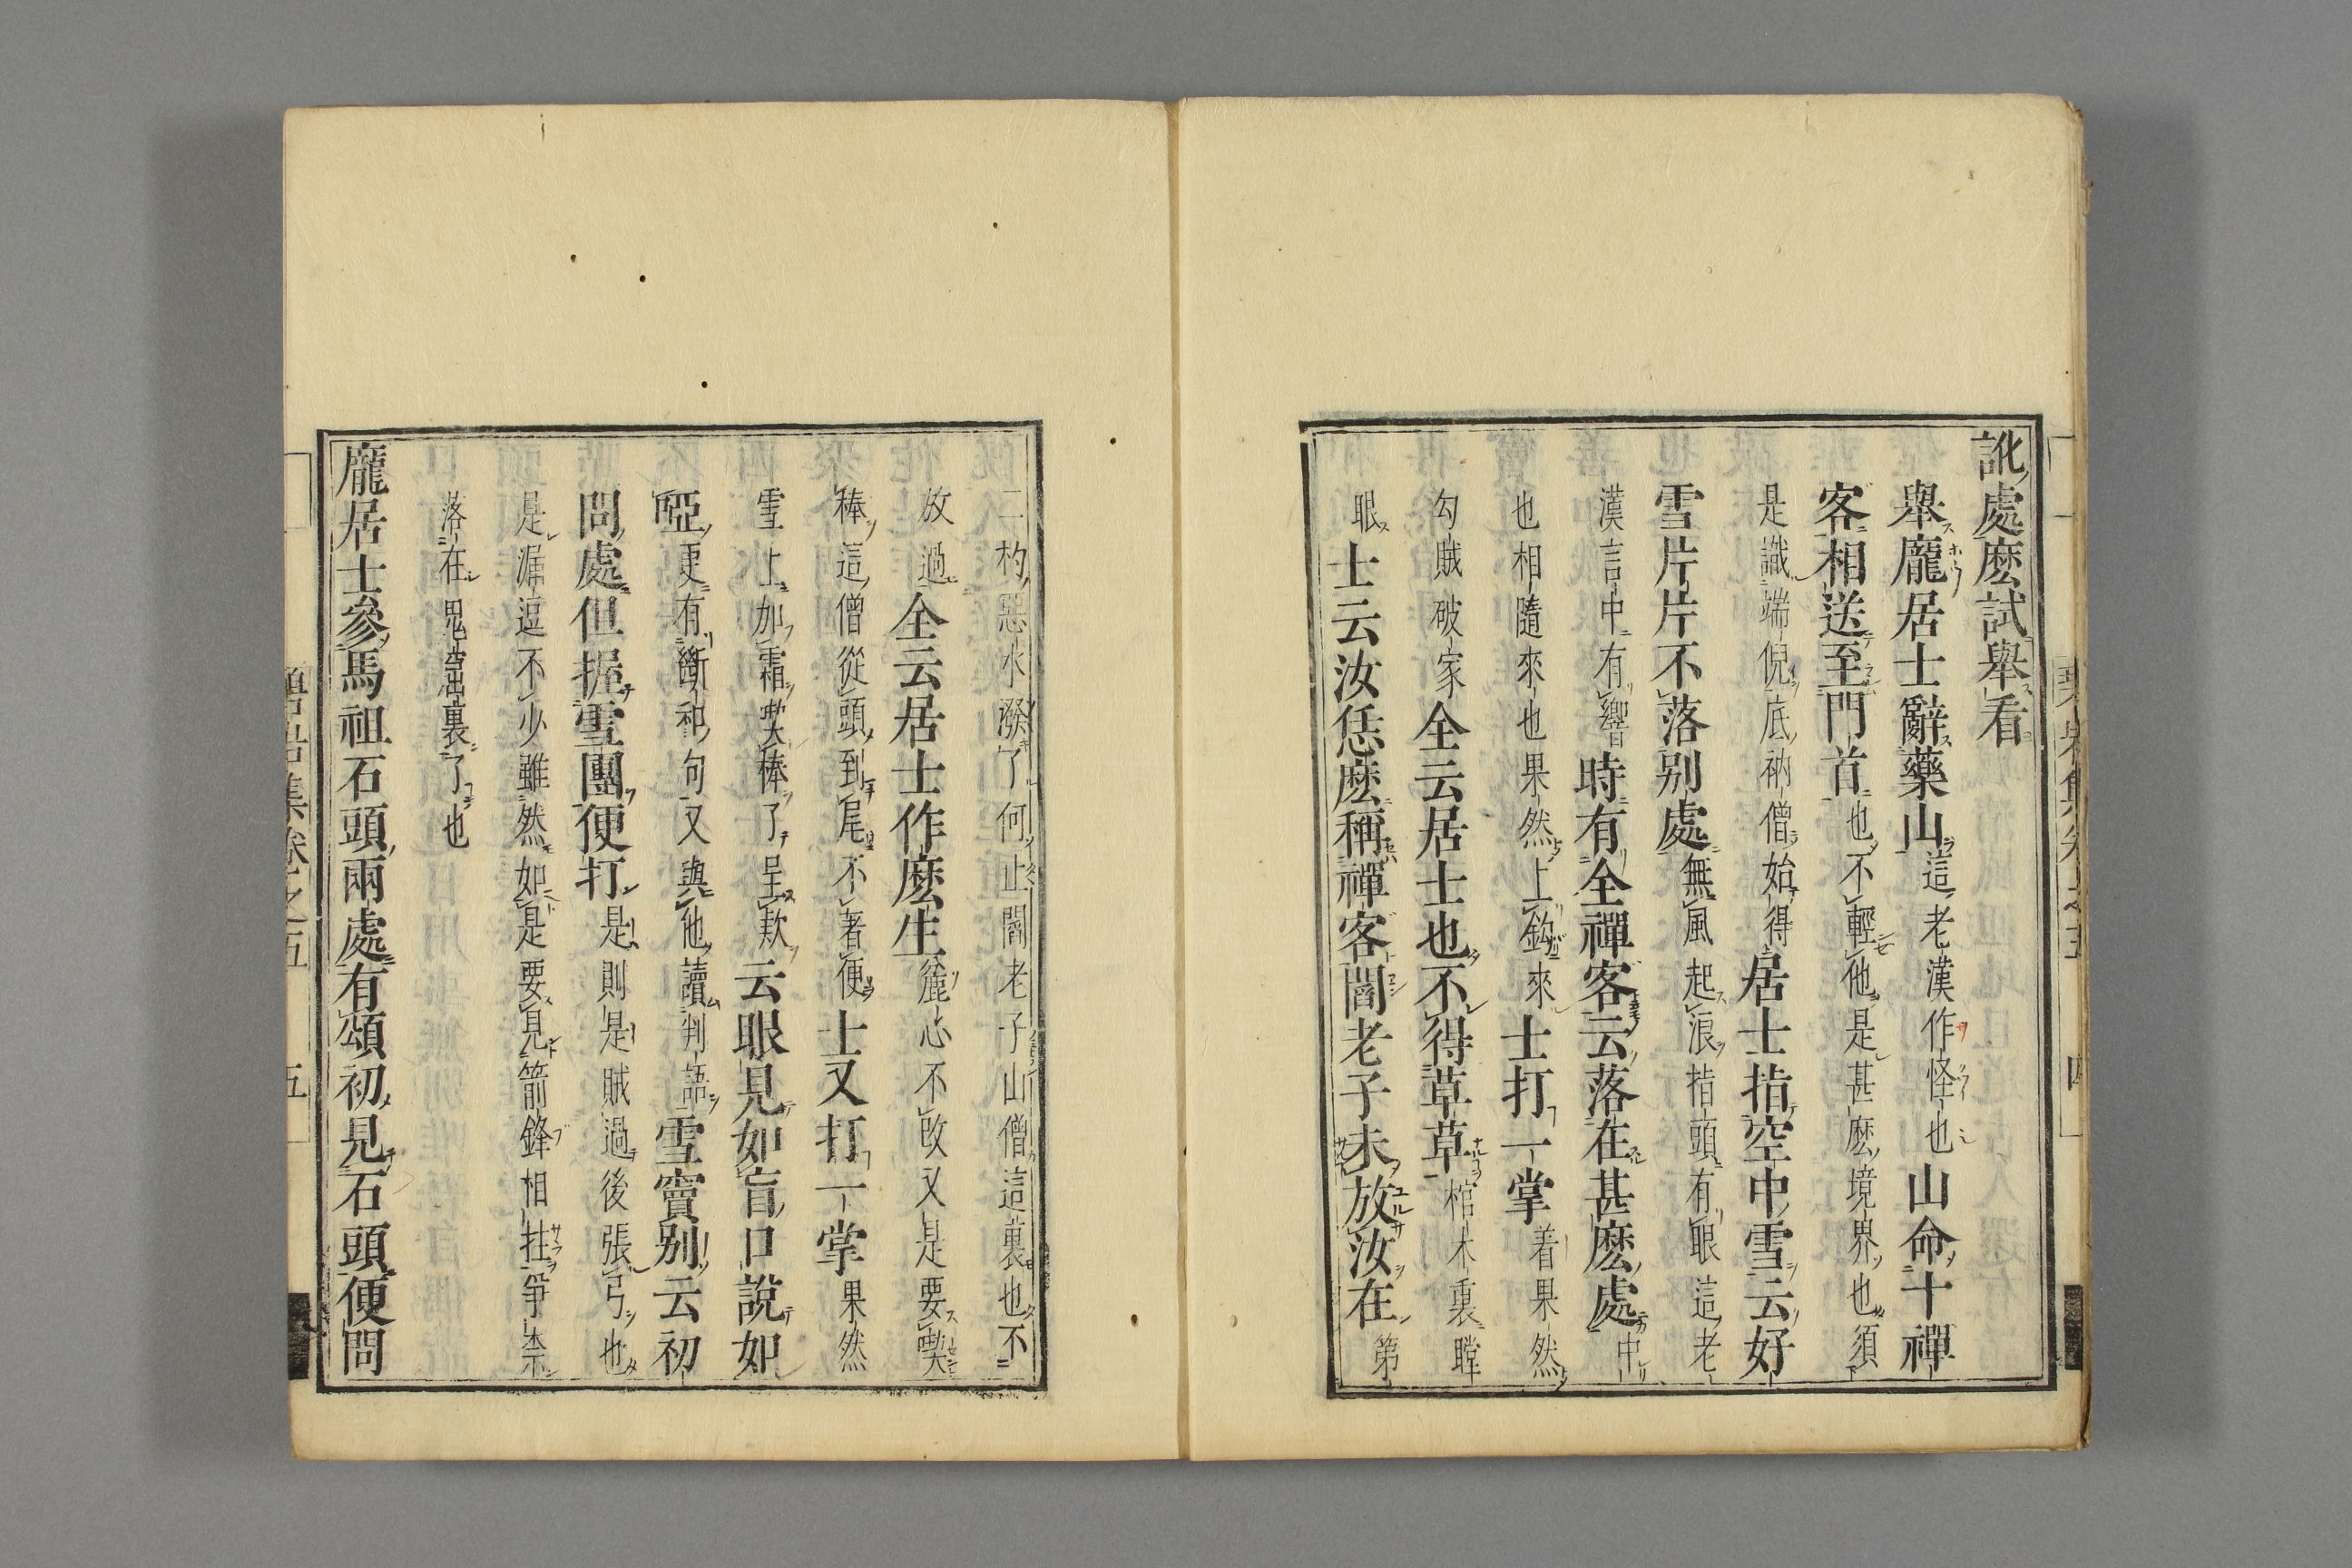 訛處麽試擧看
擧龐居士辭藥山這老漢作怪也山命十禪
客相送至門首也不輕他是甚麽境界也須
是識端倪底衲僧始得居士指空中雪云好
雪片片不落別處無風起浪指頭有眼這老
漢言中有響時有全禪客云落在甚麽處中
也相隨來也果然上鈎來士打一掌着果然
勾賊破家全云居士也不得草草棺木裏瞠
眼士云汝恁麽稱禪客閻老子未放汝在第
二杓惡水潑了何止閻老子山僧這裏也不
放過全云居士作麽生麄心不改又是要喫
棒這僧從頭到尾不著便士又打一掌果然
雪上加霜喫棒了呈款云眼見如盲口說如
啞更有斷和句又與他讀判語雪竇別云初
問處但握雪團便打是則是賊過後張弓也
是漏逗不少雖然如是要見箭鋒相拄爭柰
落在鬼窟裏了也
龐居士參馬祖石頭兩處有頌初見石頭便問
碧岩集卷之五
五